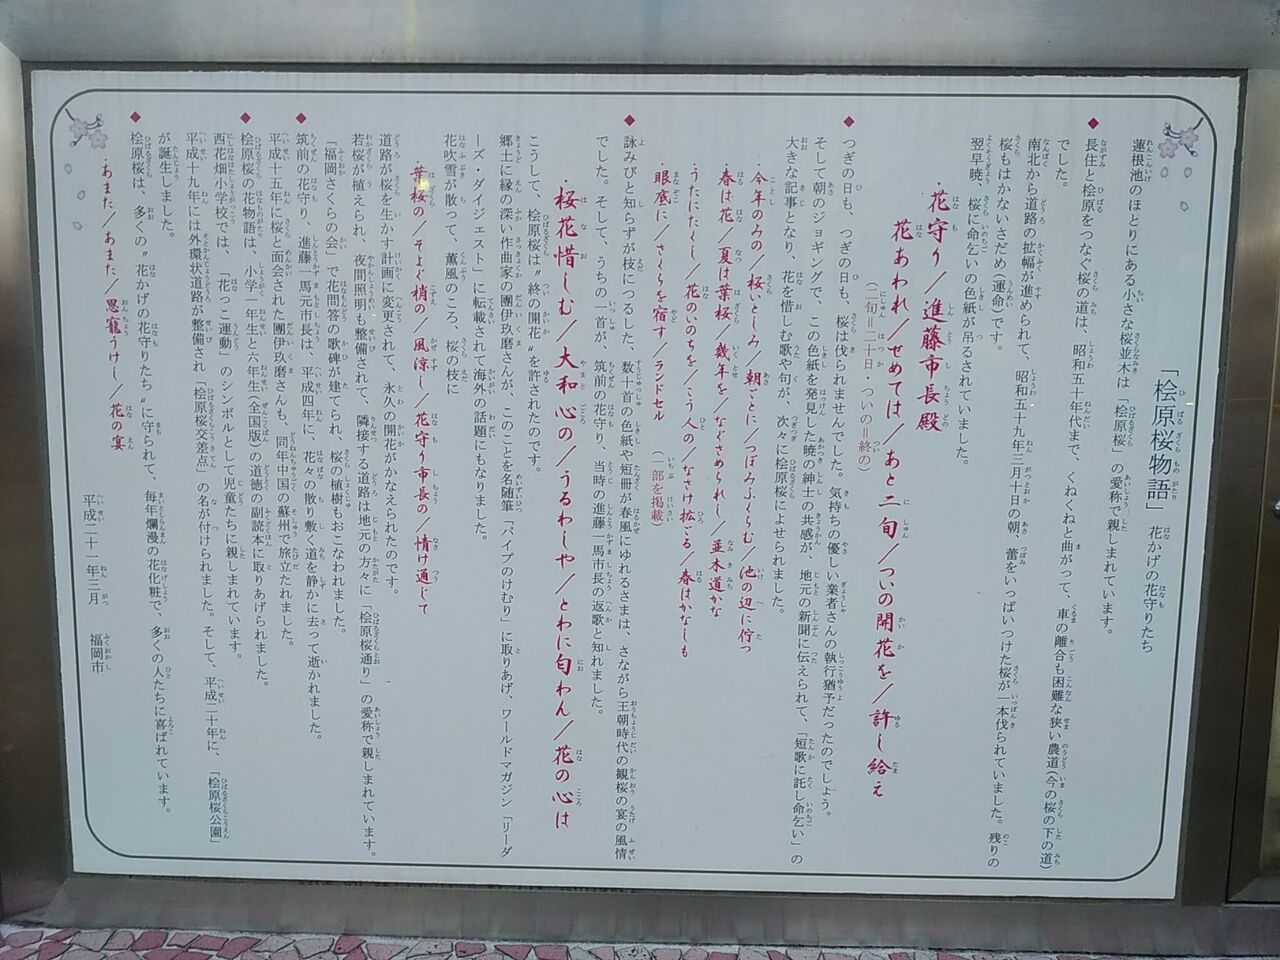 「桧原桜物語」 花かげの花守りたち
蓮根池のほとりにある小さな桜並木は「桧原桜」の愛称で親しまれています。
◆長住と桧原をつなぐ桜の道は、昭和五十年代まで、くねくねと曲がって、車の離合も困難な狭い農道(今の桜の下の道)
でした。
南北から道路の拡幅が進められて、昭和五十九年三月十日の朝、蕾をいっぱいつけた桜が一本伐られていました。残りの
桜もはかないさだめ(運命)です。
翌早暁、桜に命乞いの色紙が吊るされていました。
・花守り/進藤市長殿
花あわれ/せめては/あと二旬/ついの開花を/許し給え
(二旬=二十日・ついの=終の)
◆つぎの日も、つぎの日も、桜は伐られませんでした。気持ちの優しい業者さんの執行猶予だったのでしょう。
そして朝のジョギングで、この色紙を発見した暁の紳士の共感が、地元の新聞に伝えられて、「短歌に託し命乞い」の
大きな記事となり、花を惜しむ歌や句が、次々に桧原桜によせられました。
・今年のみの/桜いとしみ/朝ごとに/つぼみふくらむ/池の辺に佇つ
・春は花/夏は葉桜/幾年を/なぐさめられし/並木道かな
・うたにたくし/花のいのちを/こう人の/なさけ拡ごる/春はかなしも
・眼底に/さくらを宿す/ランドセル
(一部を掲載)
◆詠みびと知らずが枝につるした、数十首の色紙や短冊が春風にゆれるさまは、さながら王朝時代の観桜の宴の風情
でした。そして、うちの一首が、筑前の花守り、当時の進藤一馬市長の返歌と知れました。
・桜花惜しむ/大和心の/うるわしや/とわに匂わん/花の心は
こうして、桧原桜は〝終の開花〟を許されたのです。
郷土に縁の深い作曲家の團伊玖磨さんが、このことを名随筆「パイプのけむり」に取りあげ、ワールドマガジン「リーダ
ーズ・ダイジェスト」に転載されて海外の話題にもなりました。
花吹雪が散って、薫風のころ、桜の枝に
・葉桜の/そよぐ梢の/風涼し/花守り市長の/情け通じて
道路が桜を生かす計画に変更されて、永久の開花がかなえられたのです。
若桜が植えられ、夜間照明も整備されて、隣接する道路は地元の方々に「桧原桜通り」の愛称で親しまれています。
「福岡さくらの会」で花問答の歌碑が建てられ、桜の植樹もおこなわれました。
◆筑前の花守り、進藤一馬元市長は、平成四年に、花々の散り敷く道を静かに去って逝かれました。
平成十五年に桜と面会された團伊玖磨さんも、同年中国の蘇州で旅立たれました。
◆桧原桜の花物語は、小学一年生と六年生(全国版)の道徳の副読本に取りあげられました。
西花畑小学校では、「花っこ運動」のシンボルとして児童たちに親しまれています。
平成十九年には外環状道路が整備され「桧原桜交差点」の名が付けられました。そして、平成二十年に、「桧原桜公園」
が誕生しました。
◆桧原桜は、多くの〝花かげの花守りたち〟に守られて、毎年爛漫の花化粧で、多くの人たちに喜ばれています。
・あまた/あまた/恩寵うけし/花の宴
平成二十一年三月 福岡市